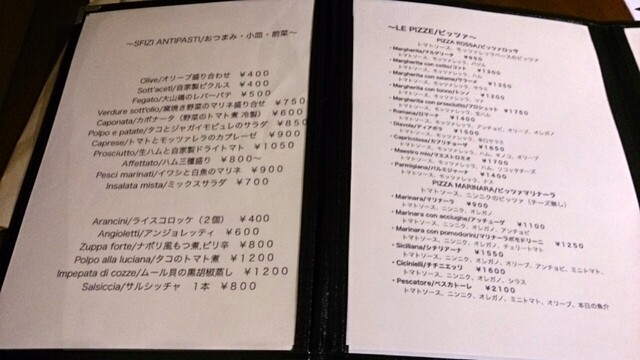 ～SFIZI ANTIPASTI/おつまみ・小皿・前菜～
Olive/オリーブ盛り合わせ ￥400
Sott'aceti/自家製ピクルス ￥400
Fegato/大山鶏のレバーパテ ￥500
Verdure sott'olio/窯焼き野菜のマリネ盛り合せ ￥750
Caponata/カポナータ（野菜のトマト煮 冷製） ￥600
Polpo e patate/タコとジャガイモピュレのサラダ ￥850
Caprese/トマトとモッツァレラのカプレーゼ ￥900
Prosciutto/生ハムと自家製ドライトマト ￥1050
Affettato/ハム三種盛り ￥800～
Pesci marinati/イワシと白魚のマリネ ￥900
Insalata mista/ミックスサラダ ￥700
Arancini/ライスコロッケ（２個） ￥400
Angioletti/アンジョレッティ ￥600
Zuppa forte/ナポリ風もつ煮,ピリ辛 ￥800
Polpo alla luciana/タコのトマト煮 ￥1200
Impepata di cozze/ムール貝の黒胡椒蒸し ￥1200
Salsiccia/サルシッチャ １本 ￥800
～LE PIZZE/ピッツァ～
PIZZA ROSSA/ピッツァロッサ
トマトソース、モッツァレラベースのピッツァ
・Margherita/マルゲリータ
トマトソース、モッツァレラ、バジル
・Margherita con cotto/コット ￥1350
トマトソース、モッツァレラ、ハム
・Margherita con salame/サラーメ
トマトソース、モッツァレラ、サラミ
・Margherita con tonno/トンノ ￥1300
トマトソース、モッツァレラ、ツナ
・Margherita con prosciutto/プロシュット ￥1750
・Romana/ローマナ ￥1400
・Diavola/ディアボラ ￥1500
トマトソース、モッツァレラ、辛口サラミ
・Capricciosa/カプリチョーザ
・Maestro mio/マエストロミオ ￥1700
・Parmigiana/パルミジャーナ ￥1400
トマトソース、モッツァレラ、ナス
PIZZA MARINARA/ピッツァマリナーラ
トマトソース、ニンニクのピッツァ（チーズ無し）
・Marinara/マリナーラ ￥900
トマトソース、ニンニク、オレガノ
・Marinara con acciughe/アッチューゲ ￥1100
トマトソース、ニンニク、オレガノ、アンチョビ
・Marinara con pomodorini/マリナーラポモドリーニ ￥1250
トマトソース、ニンニク、オレガノ、チェリートマト
・Siciliana/シチリアーナ ￥1550
トマトソース、ニンニク、オレガノ、オリーブ、アンチョビ、ミニトマト、
・Cicinielli/チチニエッリ ￥1600
トマトソース、ニンニク、オレガノ、シラス
・Pescatore/ペスカトーレ ￥2100
トマトソース、ニンニク、オレガノ、ミニトマト、オリーブ、本日の魚介